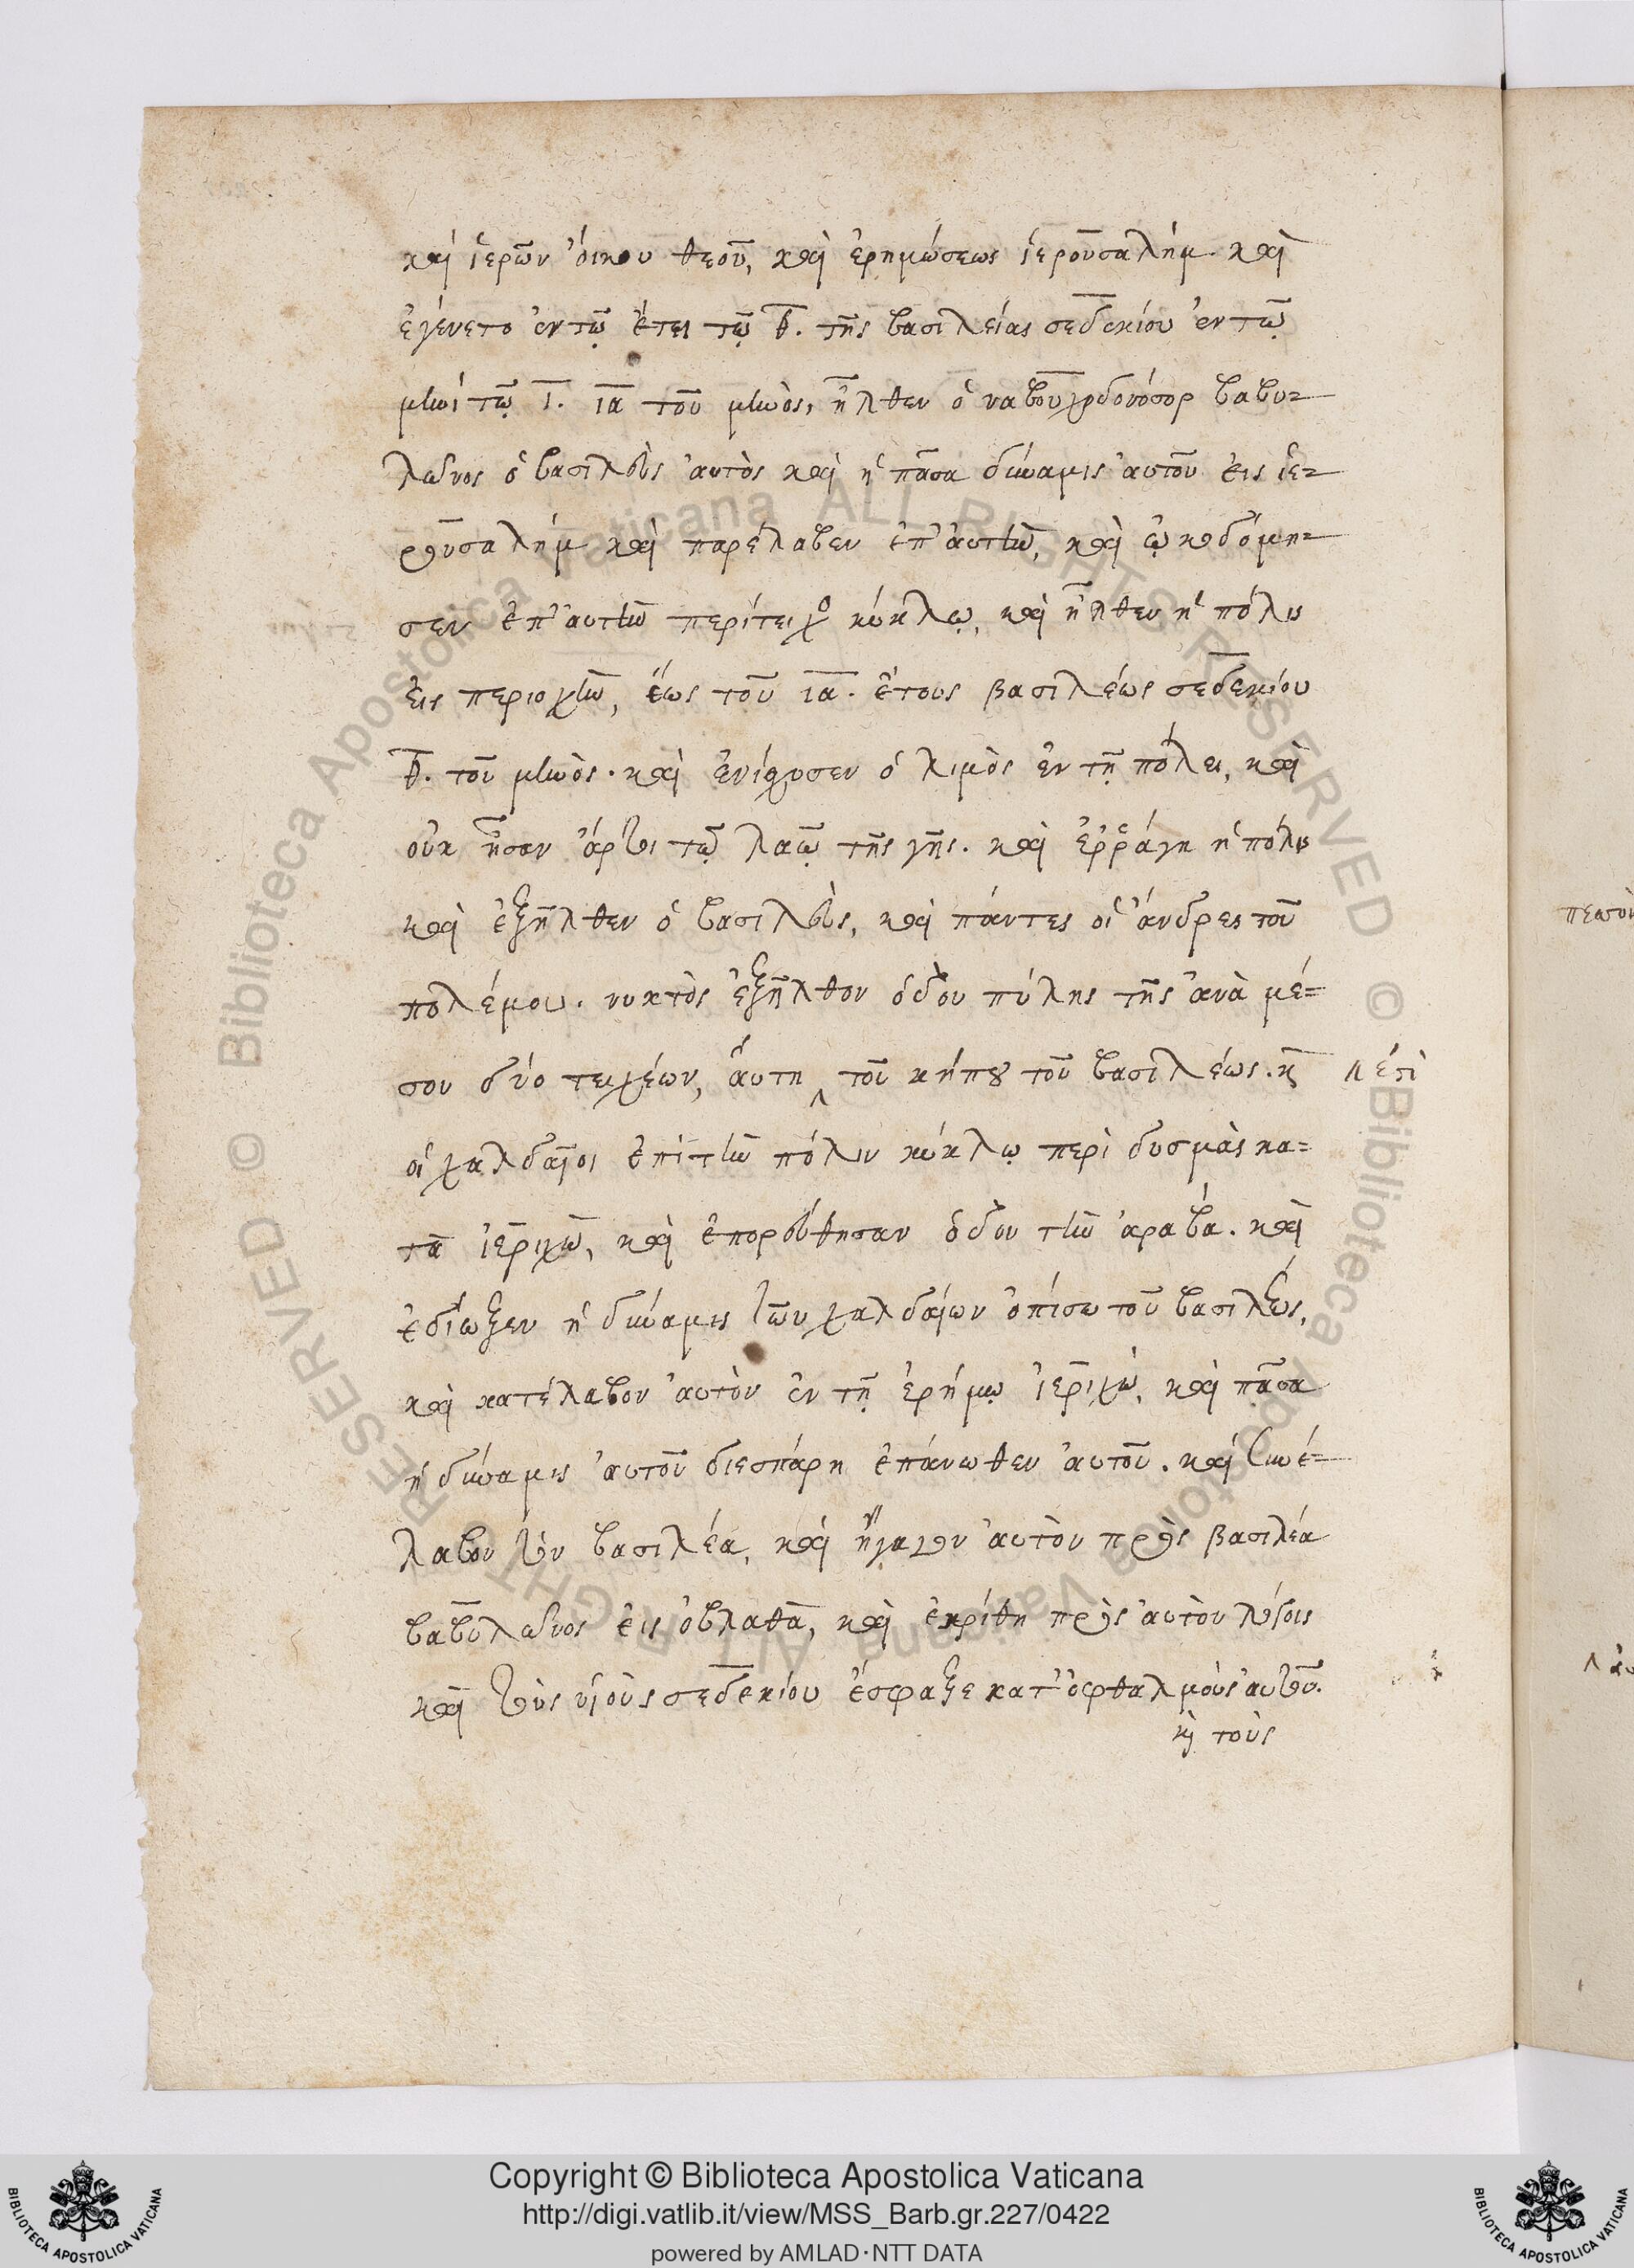 καὶ ἱερῶν ὄικου θεοῦ, καὶ ἐρημώσεως ἱερουσαλήμ. καὶ
ἐγένετο ἐν τῷ ἔτει τῷ θ. τῆς βασιλείας σεδεκίου ἐν τῷ
μηνὶ τῷ ι. ια τοῦ μηνὸς, ἦλθεν ὁ ναβουχοδονόσορ βαβυ=
λῶνος ὁ βασιλεὺς ἀυτὸς καὶ ἡ πᾶσα δύναμις ἀυτοῦ ἐις ἱε=
ρουσαλήμ καὶ παρέλαβεν ἐπ' ἀυτὴν, καὶ ᾠκοδόμη=
σεν ἐπ' ἀυτὴν περίτειχο κύκλῳ, καὶ ἦλθεν ἡ πόλις
ἐις περιοχὴν, ἕως τοῦ ια. ἔτους βασιλέως σεδεκίου
θ. τοῦ μηνὸς. καὶ ἐνίσχυσεν ὁ λιμὸς ἐν τῇ πόλει, καὶ
οὐκ ἦσαν ἄρτοι τῷ λαῷ τῆς γῆς. καὶ ἐῤῥάγη ἡ πόλις
καὶ ἐξῆλθεν ὁ βασιλεὺς, καὶ πάντες οἱ ἄνδρες τοῦ
πολέμου. νυκτὸς ἐξῆλθον ὁδὸν πύλης τῆς ἀνὰ μέ=
σον δύο τειχέων, ἅυτη ‸ τοῦ κήπου τοῦ βασιλέως. κ
‸ ἐστὶ
οἱ χαλδαῖοι ἐπὶ τὴν πόλιν κύκλῳ περὶ δυσμὰς κα=
τὰ ἱεριχῶ, καὶ ἐπορεύθησαν ὁδὸν τὴν ἀραβά. καὶ
ἐδίωξεν ἡ δύναμις τῶν χαλδαίων ὀπίσω τοῦ βασιλέως,
καὶ κατέλαβον ἀυτὸν ἐν τῇ ἐρήμῳ ἱεριχὼ, καὶ πᾶσα
ἡ δύναμις ἀυτοῦ διεσπάρη ἐπάνωθεν ἀυτοῦ. καὶ συνέ=
λαβον τὸν βασιλέα, καὶ ἤγαγον ἀυτὸν πρὸς βασιλέα
βαβυλῶνος ἐις ὀβλαθᾶ, καὶ ἐκρίθη πρὸς ἀυτὸν λόγοις
καὶ τοὺς υἱοὺς σεδεκίου ἔσφαξε κατ' ὀφθαλμοὺς ἀυτοῦ.
κὶ τοὺς
Copyright © Biblioteca Apostolica Vaticana
http://digi.vatlib.it/view/MSS_Barb.gr.227/0422
powered by AMLAD·NTT DATA
BIBLIOTECA APOSTOLICA VATICANA
BIBLIOTECA APOSTOLICA VATICANA
© Biblioteca Apostolica Vaticana ALL RIGHTS RESERVED © Biblioteca Apostolica Vaticana ALL RIGHTS RESERVED